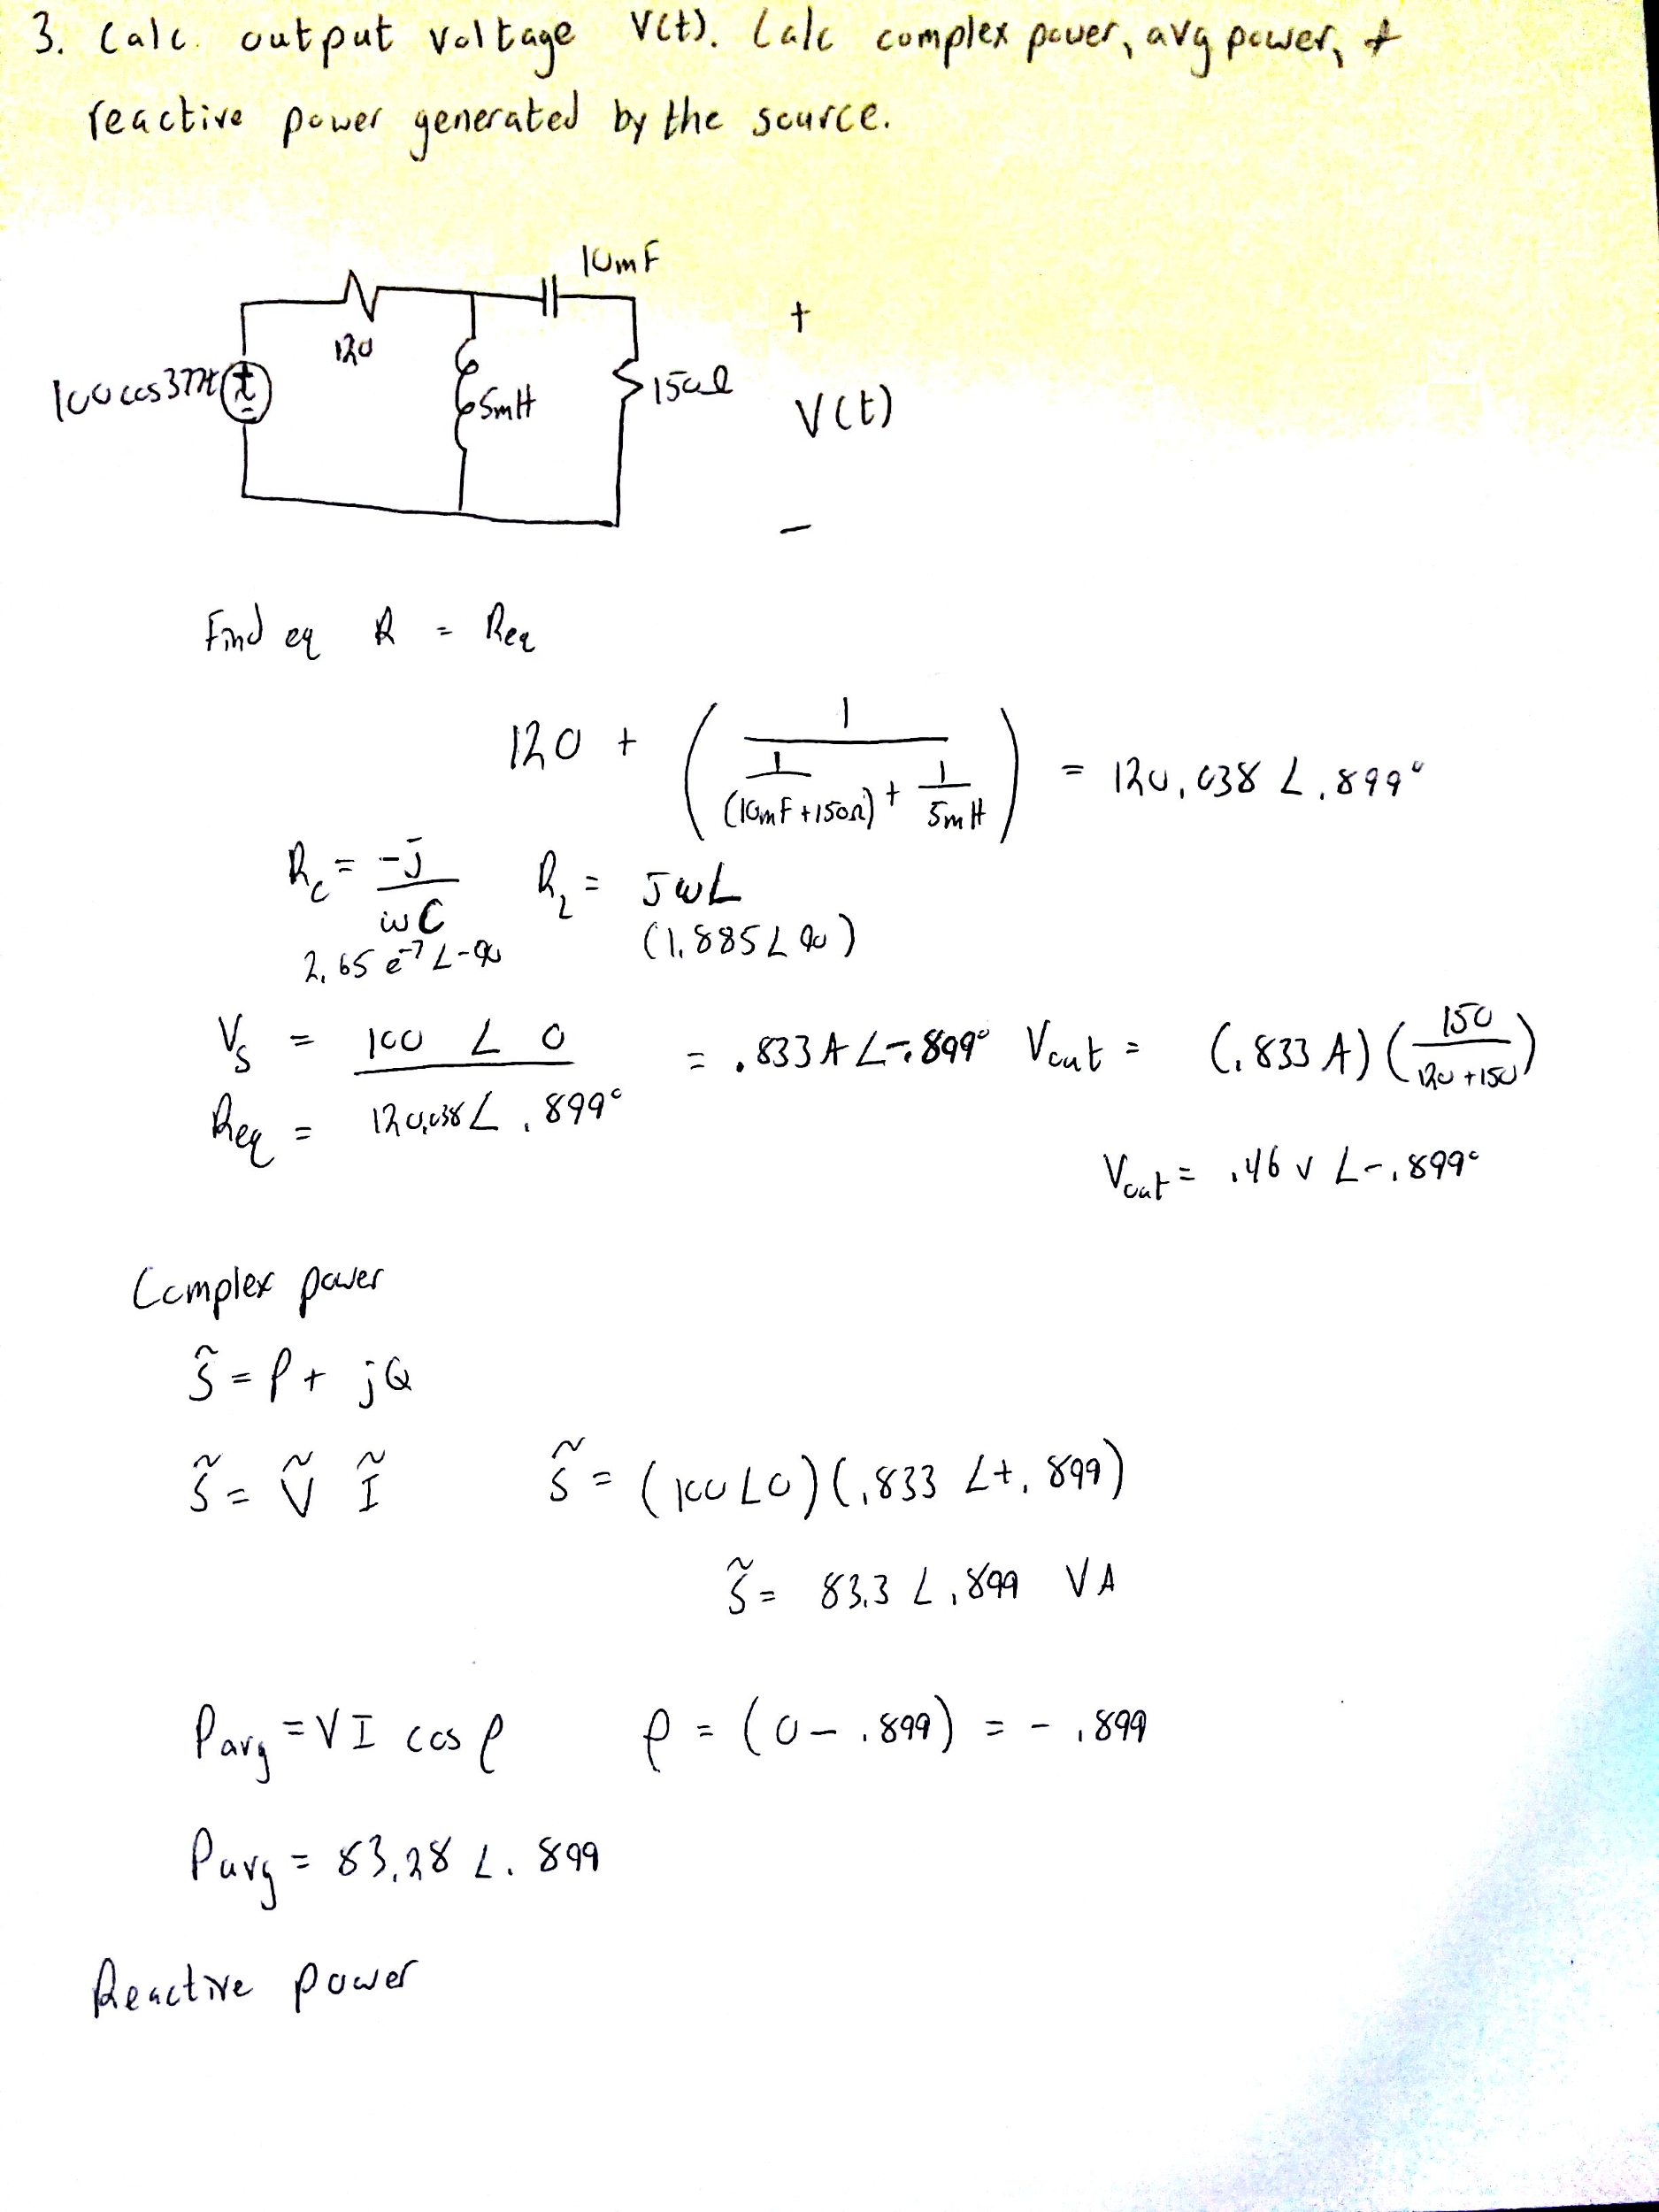 3. Calc. output voltage V(t). Calc complex power, avg power, +
reactive power generated by the source.
10mF
120
100cos377t
+
-
5mH
150Ω
+
V(t)
-
Find eq R = Req
120 + ( 1 / ( 1/(10mF+150Ω) + 1/5mH ) ) = 120.038 ∠.899°
Rc = -j/ωC RL = jωL
2.65e^-7 ∠-90 (1.885∠90)
Vs = 100 ∠ 0 = .833A∠-.899° Vout = (.833A)(150/(120+150))
Req = 120.038∠.899°
Vout = .46v ∠-.899°
Complex power
S̃ = P + jQ
S̃ = Ṽ Ĩ S̃ = (100∠0)(.833 ∠+.899)
S̃ = 83.3 ∠.899 VA
Pavg = VI cos ρ ρ = (0-.899) = -.899
Pavg = 83.28 ∠.899
Reactive power